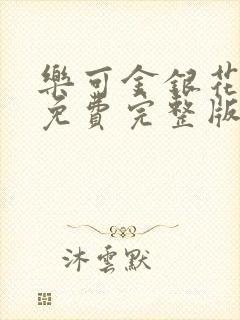 樂可金銀花
免費完整版
沐雲默